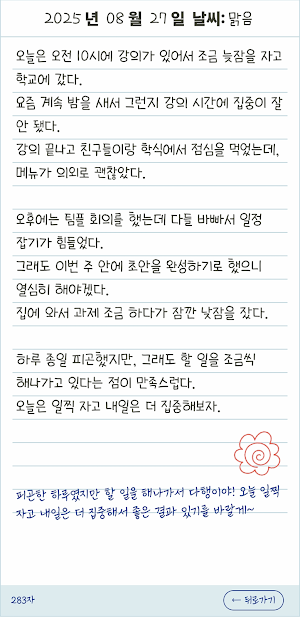 2025년 08월 27일 날씨: 맑음
오늘은 오전 10시에 강의가 있어서 조금 늦잠을 자고
학교에 갔다.
요즘 계속 밤을 새서 그런지 강의 시간에 집중이 잘
안 됐다.
강의 끝나고 친구들이랑 학식에서 점심을 먹었는데,
메뉴가 의외로 괜찮았다.
오후에는 팀플 회의를 했는데 다들 바빠서 일정
잡기가 힘들었다.
그래도 이번 주 안에 초안을 완성하기로 했으니
열심히 해야겠다.
집에 와서 과제 조금 하다가 잠깐 낮잠을 잤다.
하루 종일 피곤했지만, 그래도 할 일을 조금씩
해나가고 있다는 점이 만족스럽다.
오늘은 일찍 자고 내일은 더 집중해보자.
피곤한 하루였지만 할 일을 해나가서 다행이야! 오늘 일찍
자고 내일은 더 집중해서 좋은 결과 있기를 바랄게~
283자
← 뒤로가기